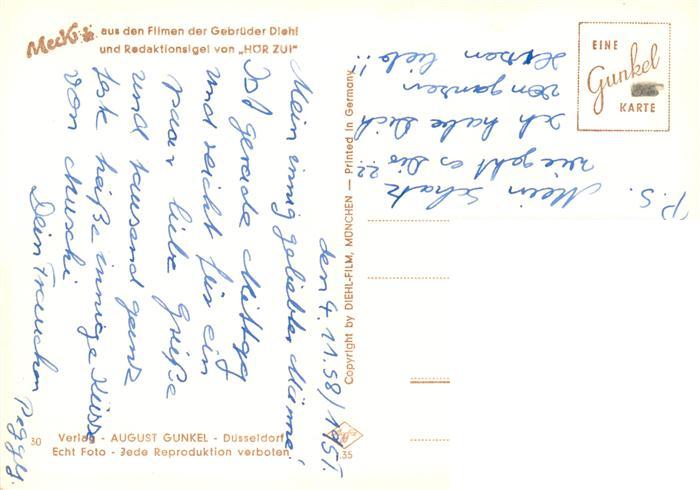 Mecki aus den Filmen der Gebrüder Diehl
und Redaktionsigel von „HÖR ZU!"
EINE
Gunkel
KARTE
P.S. Mein Schatz
wie geht es Dir ???
Ich habe Dich
von ganzen
Herzen lieb!!
den 4.11.58/1957.
Mein innig geliebter Männe!
Ist gerade Mittag
und reicht für ein
paar liebe Grüße
und tausend ganz
feste heiße innige Küsse
von Muschi
Dein Frauchen Peggy.
Copyright by DIEHL-FILM, MÜNCHEN — Printed in Germany
30
Verlag - AUGUST GUNKEL - Düsseldorf
Echt Foto - Jede Reproduktion verboten
.35